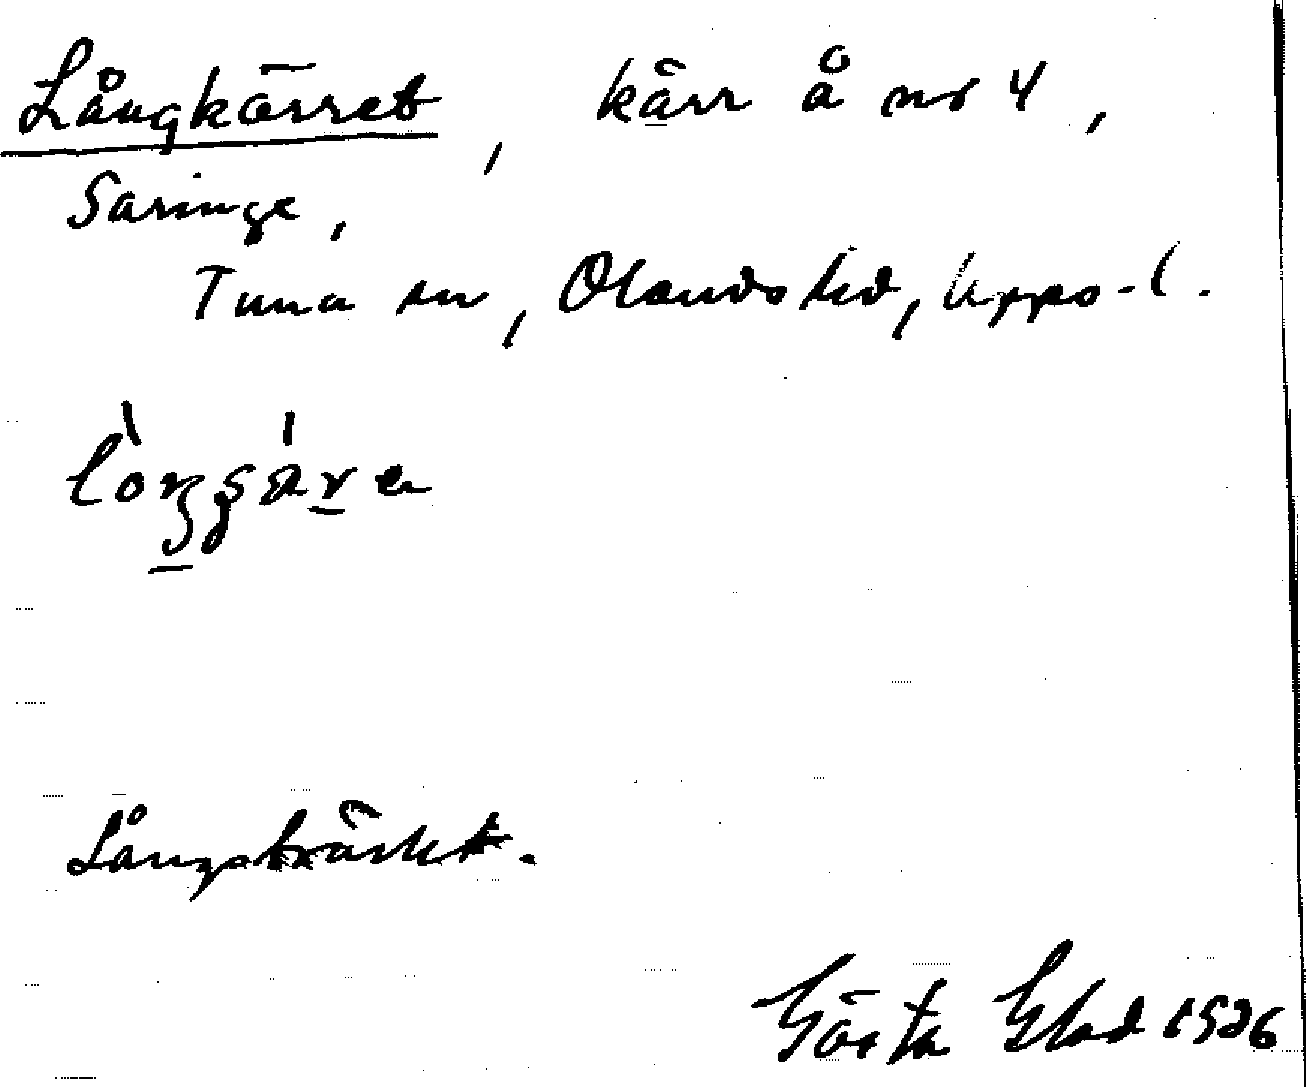 Långkärret, kärr å nr 4,
Saringe,
Tuna sn, Olands hd, Upps-l.
Långsträckt.
Gösta Glad 1926